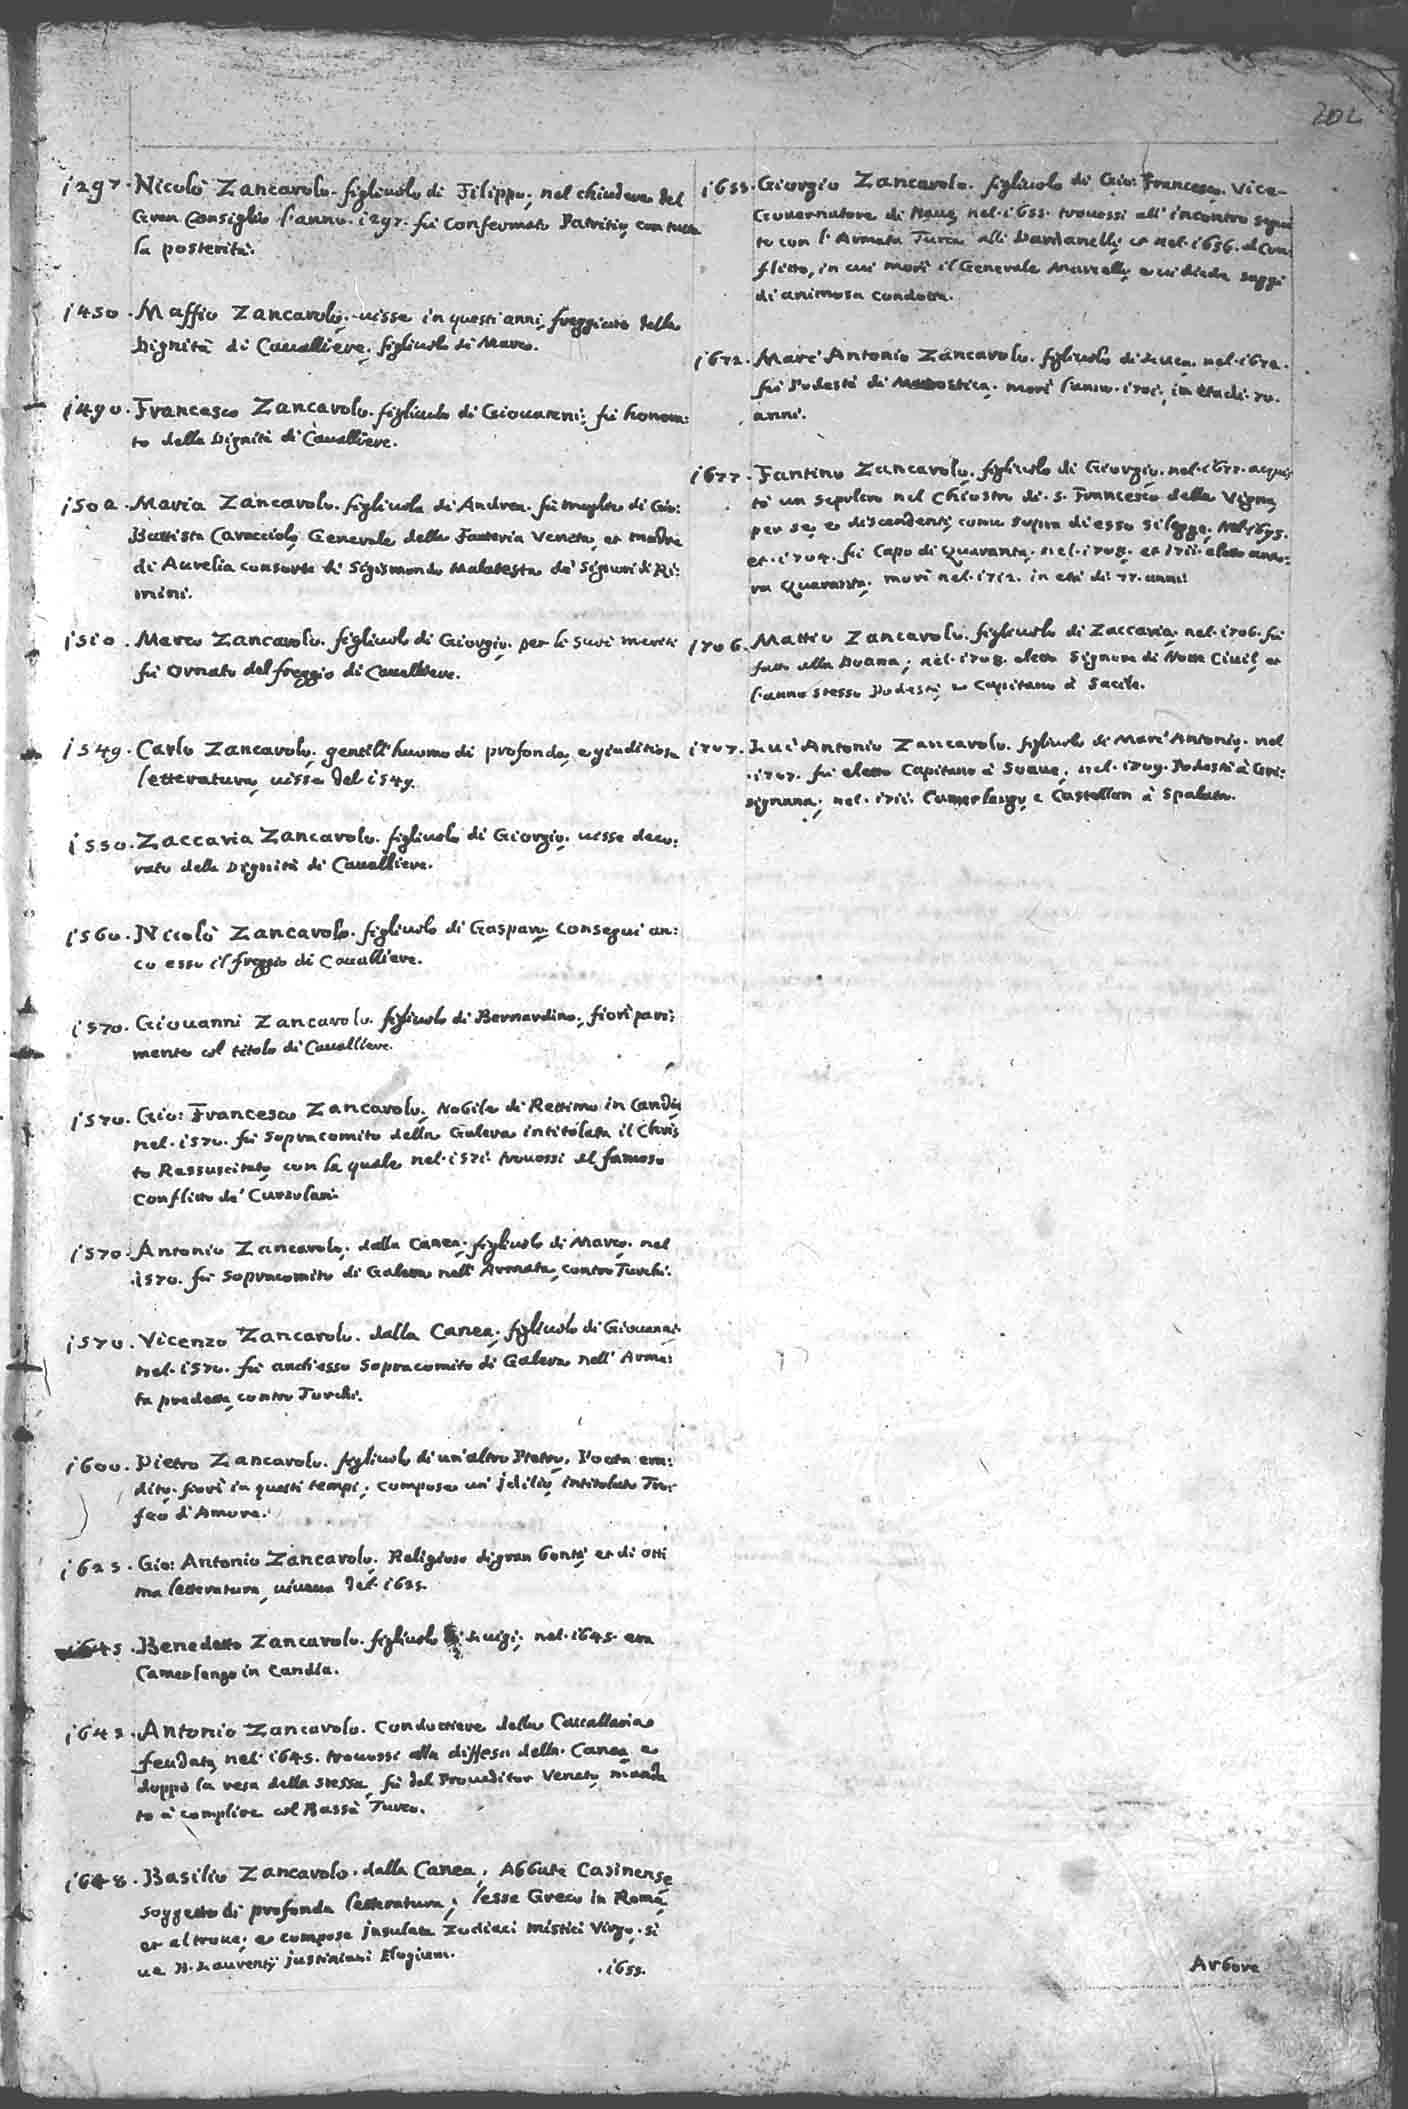 202
1297. Nicolò Zancarolo. figliuolo di Filippo, nel chiudere del
Gran Consiglio l'anno. 1297. fù Confermato Patritio, con tutta
la posterità.
1450. Maffio Zancarolo, uisse in questi anni, freggiato della
Dignità di Cauálliere, figliuolo di Marco.
1490. Francesco Zancarolo. figliuolo di Giouanni; fù honora:
to della Dignità di Cauálliere.
1502. Maria Zancarolo. figliuola di Andrea. fù moglie di Gio:
Battista Caracciolo, Generale della Fanteria Veneta, et madre
di Aurelia consorte di Sigismondo Malatesta de' Signori di Ri:
mini.
1510. Marco Zancarolo. figliuolo di Giorgio. per li suoi meriti
fù ornato del freggio di Cauálliere.
1549. Carlo Zancarolo, gentil'huomo di profonda, e giuditiosa
letteratura, uisse del 1549.
1550. Zaccaria Zancarolo. figliuolo di Giorgio. uisse deco:
rato della Dignità di Cauálliere.
1560. Nicolò Zancarolo. figliuolo di Gasparo, conseguì an:
co esso il freggio di Cauálliere.
1570. Giouanni Zancarolo. figliuolo di Bernardino, fiorì pari:
mente col titolo di Cauálliere.
1570. Gio: Francesco Zancarolo, Nobile di Rettimo in Candia
nel. 1570. fù Sopracomito della Galera intitolata il Chris
to Ressuscitato, con la quale nel. 1571. trouossi al famoso
Conflitto de' Curzolari.
1570. Antonio Zancarolo, dalla Canea, figliuolo di Marco. nel
.1570. fù Sopracomito di Galera nell'Armata, contro Turchi.
1570. Vicenzo Zancarolo. dalla Canea, figliuolo di Giouanni.
nel. 1570. fù anch'esso Sopracomito di Galera nell'Arma:
ta predetta, contro Turchi.
1600. Pietro Zancarolo. figliuolo di un'altro Pietro, Poeta eru:
dito, fiorì in questi tempi, compose un' jdilio, intitolato Tro:
feo d'Amore.
1625. Gio: Antonio Zancarolo, Religioso di gran bontà, et di otti
ma letteratura, uiueua del. 1625.
1645. Benedetto Zancarolo. figliuolo di Luigi, nel. 1645. era
Camerlengo in Candia.
1645. Antonio Zancarolo. Conduttiere della Cauallaria
feudata, nel 1645. trouossi alla diffesa della Canea, e
doppò la resa della stessa, fù dal Proueditor Veneto, manda
to à complire col Bassà Turco.
1648. Basilio Zancarolo. dalla Canea, Abbate Casinense
soggetto di profonda letteratura; lesse Greco in Roma,
et altroue, e compose jnsulata Zodiaci mistici Virgo, si
ue B. Laurentij justiniani Elogium.
.1655.
1655. Giorgio Zancarolo. figliuolo di Gio: Francesco, Vice-
Gouernatore di Naue, nel. 1655. trouossi all'incontro segui
to con l'Armata Turca alli Dardanelli, et nel. 1656. al Con
flitto, in cui morì il Generale Marcello, e ui diede saggi
di animosa condotta.
1672. Marc'Antonio Zancarolo. figliuolo di Luca, nel. 1672.
fù Podestà di Marostica, morì l'anno. 1701. in età di. 70.
anni.
1677. Fantino Zancarolo. figliuolo di Giorgio. nel. 1677. acquis
tò un sepolcro nel Chiostro di. S. Francesco della Vigna,
per sè, e discendenti, come sopra di esso si legge. Nel. 1695.
et. 1704. fù Capo di Quaranta. nel. 1708. et 1711. eletto anco:
ra Quaranta, morì nel. 1712. in età di. 77. anni.
1706. Mattio Zancarolo. figliuolo di Zaccaria, nel. 1706. fù
fatto alla Doana; nel. 1708. eletto Signore di Notte Ciuil, et
l'anno stesso Podestà, e Capitano à Sacile.
1707. Luc'Antonio Zancarolo. figliuolo di Marc'Antonio, nel
.1707. fù eletto Capitano à Soaue, nel. 1709. Podestà à Gri:
signana, nel. 1711. Camerlengo, e Castellan à Spalato.
Arbore